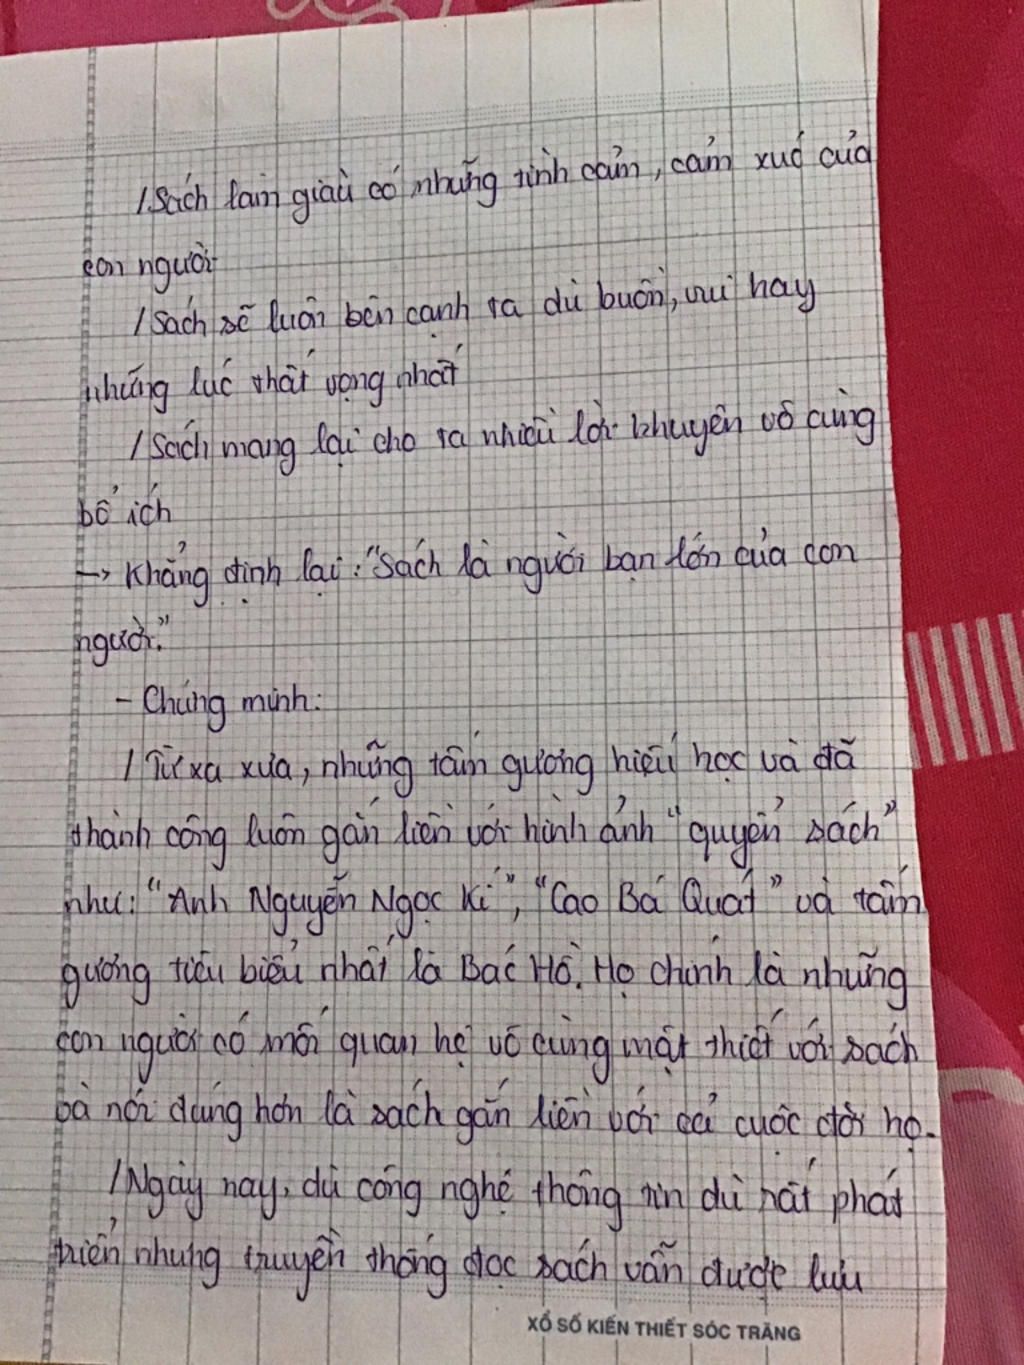 / Sách làm giàu có những tình cảm, cảm xúc của
con người
/ Sách sẽ luôn bên cạnh ta dù buồn, vui hay
những lúc thất vọng nhất
/ Sách mang lại cho ta nhiều lời khuyên vô cùng
bổ ích
→ Khẳng định lại: "Sách là người bạn lớn của con
người."
- Chứng minh:
/ Từ xa xưa, những tấm gương hiếu học và đã
thành công luôn gắn liền với hình ảnh "quyển sách"
như: "Anh Nguyễn Ngọc Kí", "Cao Bá Quát" và tấm
gương tiêu biểu nhất là Bác Hồ. Họ chính là những
con người có mối quan hệ vô cùng mật thiết với sách
và nói đúng hơn là sách gắn liền với cả cuộc đời họ.
/ Ngày nay, dù công nghệ thông tin dù rất phát
triển nhưng truyền thống đọc sách vẫn được lưu
XỔ SỐ KIẾN THIẾT SÓC TRĂNG